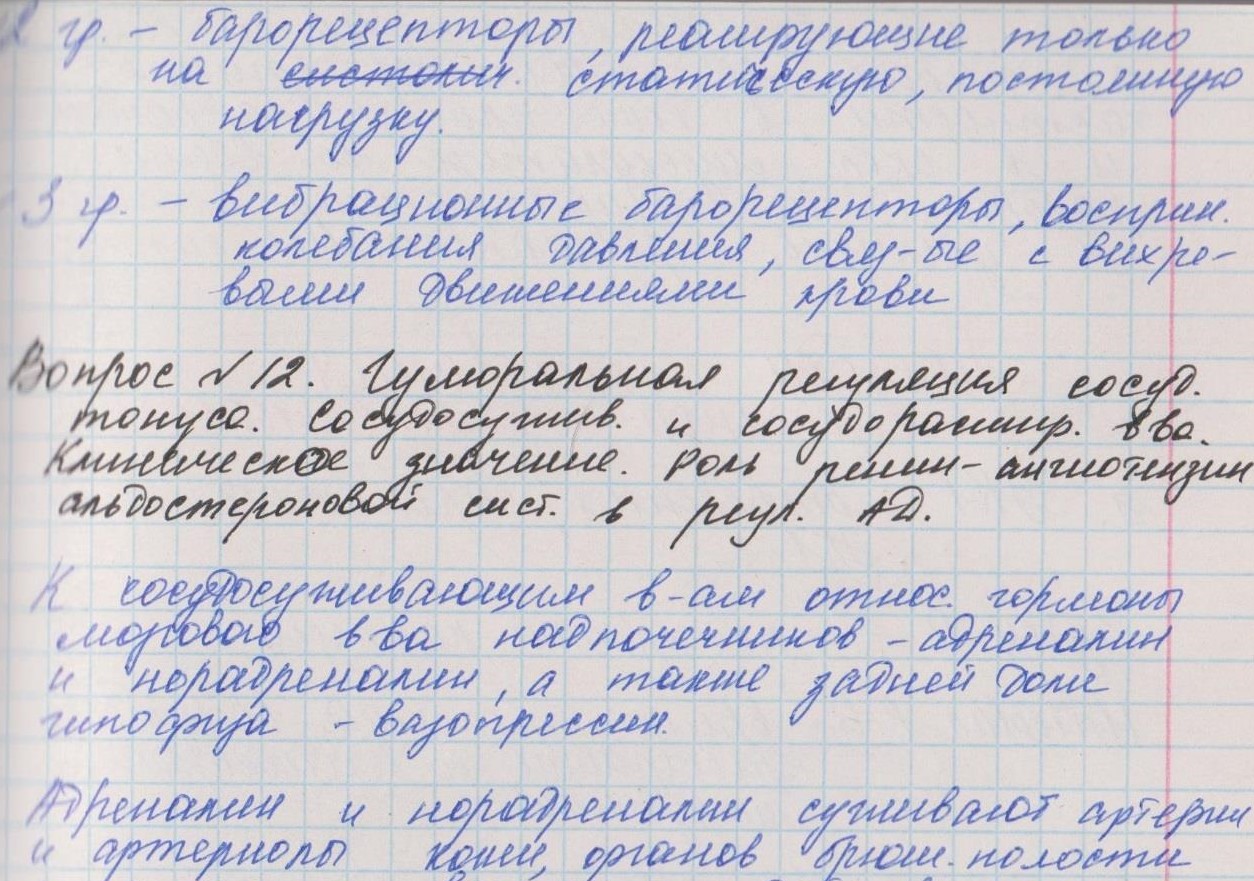 2 гр. – барорецепторы, реагирующие только
на систолич. статическую, постоянную
нагрузку.
3 гр. – вибрационные барорецепторы, восприн.
колебания давления, связ-ые с вихре-
выми движениями крови
Вопрос №12. Гуморальная регуляция сосуд.
тонуса. Сосудосужив. и сосудорасшир. в-ва.
Клиническое значение. Роль ренин-ангиотензин
альдостероновой сист. в регул. АД.
К сосудосуживающим в-ам относ. гормоны
мозгового в-ва надпочечников – адреналин
и норадреналин, а также задней доли
гипофиза – вазопрессин.
Адреналин и норадреналин суживают артерии
и артериолы кожи, органов брюш. полости